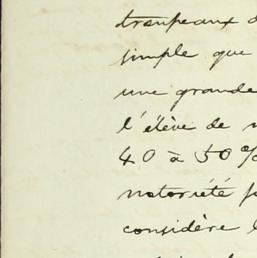 troupeaux d
simple que
une grande
l'élève de
40 à 50%
notoriété
considère l